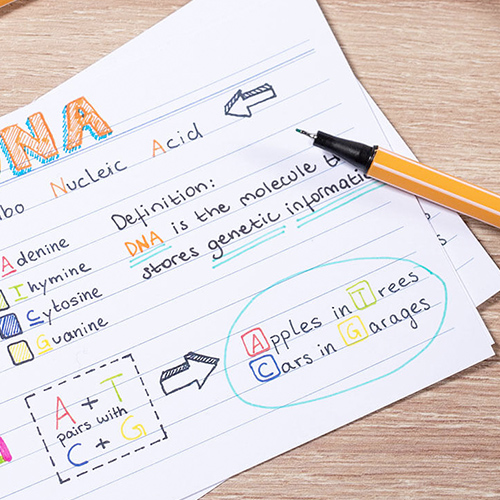 NA
bo Nucleic Acid
Definition:
DNA is the molecule
stores genetic informati
Adenine
Thymine
Cytosine
Guanine
A + T
pairs with
C + G
Apples in Trees
Cars in Garages